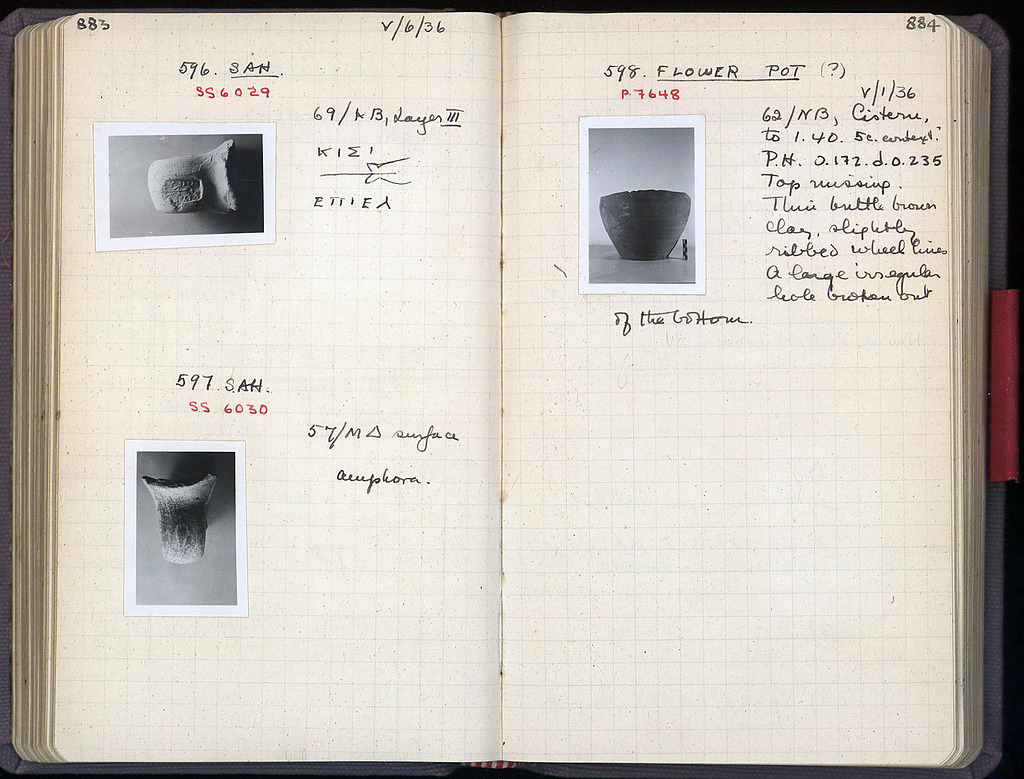 883
V/6/36
596. SAH.
SS 6029
69/ΛB, Layer III
ΚΙΣΙ
ΕΠΙΕΛ
597. SAH.
SS 6030
57/ΜΔ surface
amphora.
884
598. FLOWER POT (?)
P 7648
V/1/36
62/NB, Cistern,
to 1.40. 5c. context?
P.H. 0.172. d. 0.235
Top missing.
Thin brittle brown
clay, slightly
ribbed wheel lines
A large irregular
hole broken out
of the bottom.